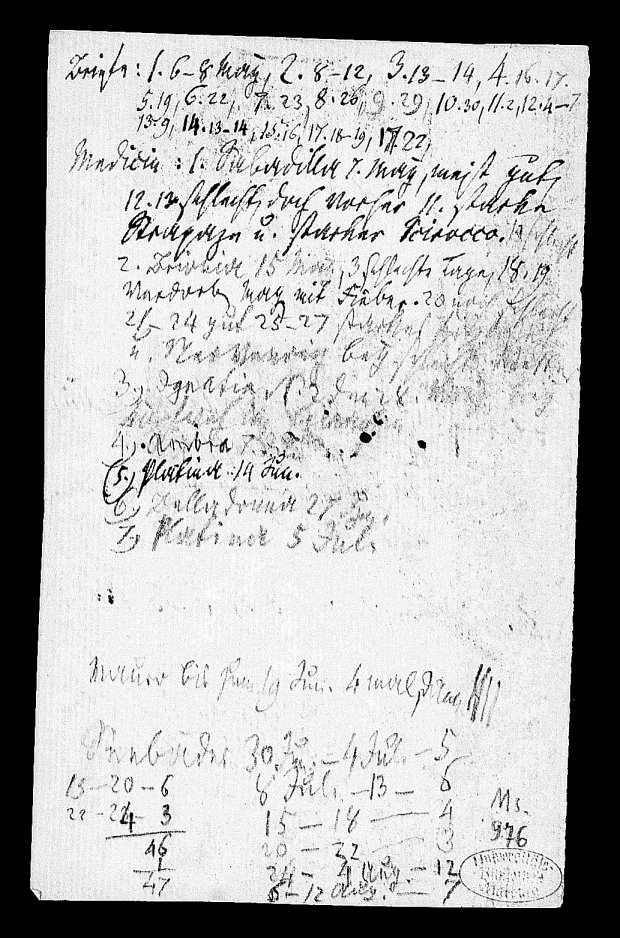 Briefe: 1. 6–8 May, 2. 8–12, 3. 13–14, 4. 16. 17.
5. 19, 6. 22, 7. 23, 8. 26, 9. 29, 10. 30, 11. 2, 12. 4–7
13. 9, 14. 13–14, 15. 16, 17. 18–19, 17. 22,
Medicin: 1. Sabadilla 7. May, meist gut,
12. 13 schlecht, doch vorher 11. starke
Strapaze u. starker Scirocco.
2. Brionia 15 May, 3 schlechte Tage, 18. 19
Verdorb. Mag mit Fieber. 20 noch schlecht
21–24 gut 25–27 starkes
u. bey schlecht
3., Ignatia, den 28. May
4., Ambra 7.
(5., Platina 14 Jun.
6., Belladonna 27 Ju.
7., Platina 5 Jul.
bis zum 19 Jun. 4 mal
Seebäder 30. Ju. – 4 Jul. – 5
15–20–6 8 Jul. –13– 6
22–24– 3 15 – 18 — 4
46 20 – 22 — 3
1 24 – 4 Aug. – 12
47 6 – 12 Aug. — 7
Ms.
976
Universitäts-
Bibliothek